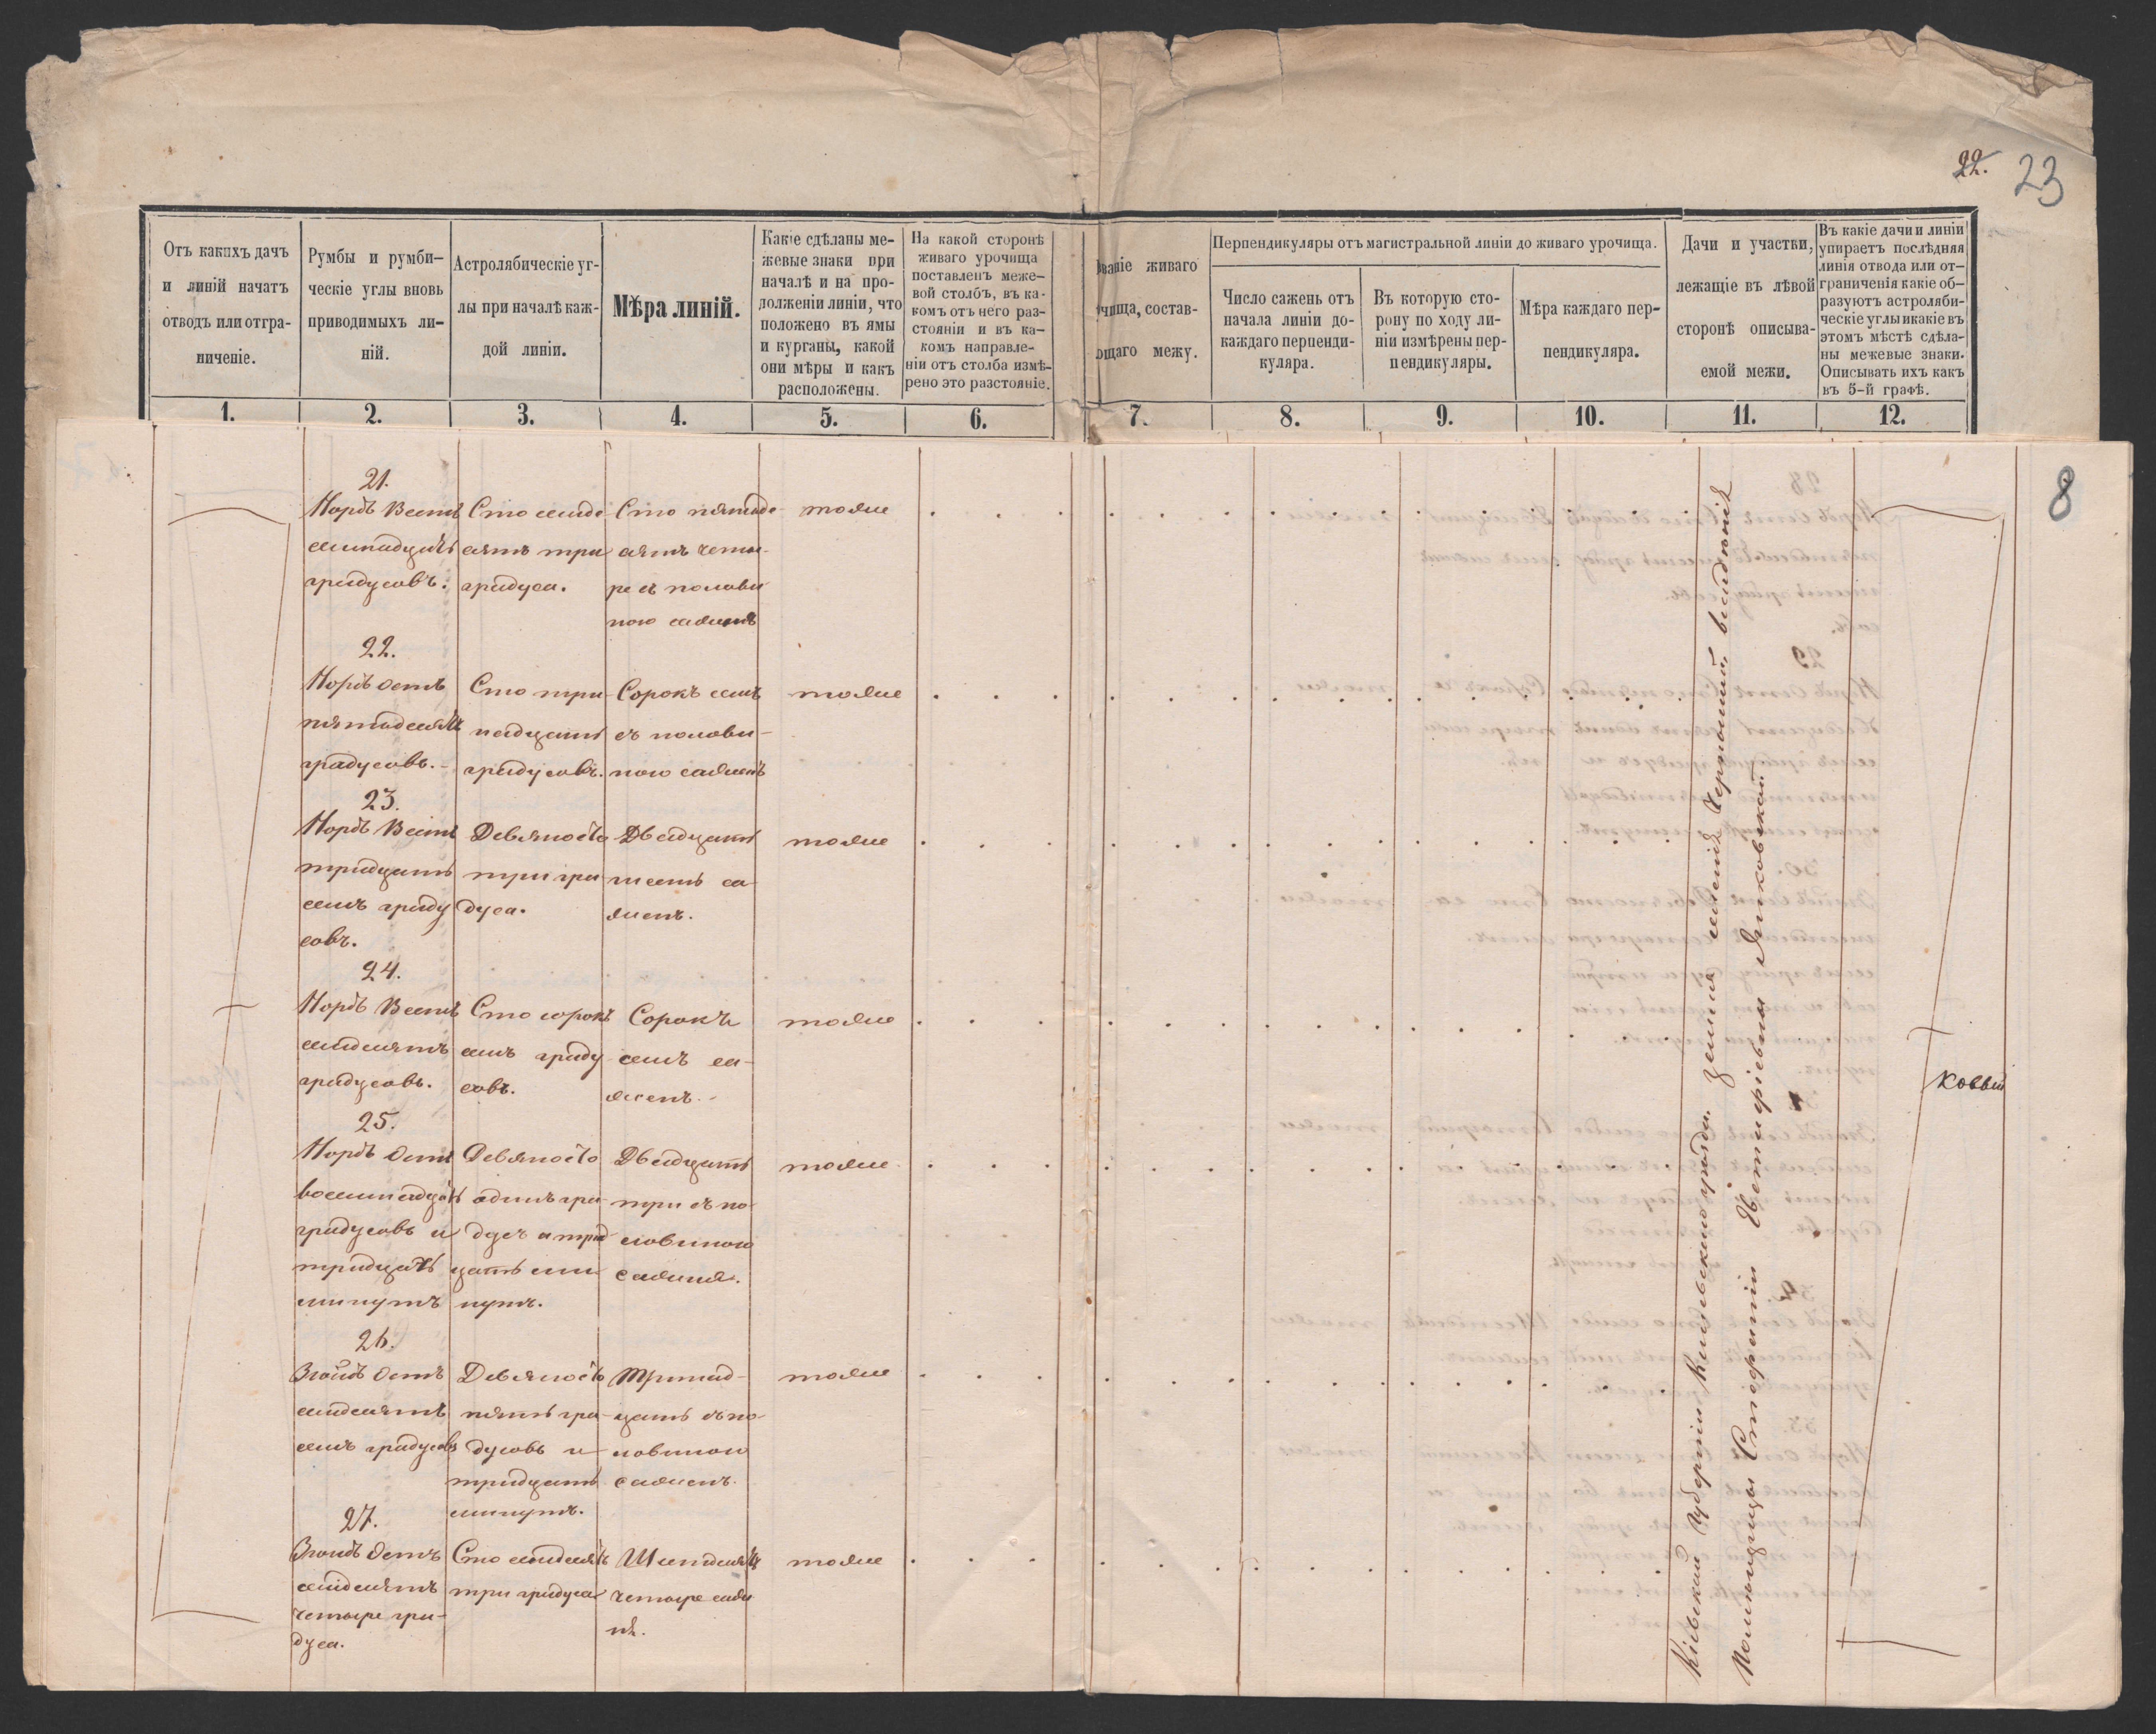 22. 23
Отъ какихъ дачъ
и линій начатъ
отводъ или отгра-
ниченіе.
Румбы и румби-
ческіе углы вновь
приводимыхъ ли-
ній.
Астролябическіе уг-
лы при началѣ каж-
дой линіи.
Мѣра линій.
Какіе сдѣланы ме-
жевые знаки при
началѣ и на про-
долженіи линіи, что
положено въ ямы
и курганы, какой
они мѣры и какъ
расположены.
На какой сторонѣ
живаго урочища
поставленъ меже-
вой столбъ, въ ка-
комъ отъ него раз-
стояніи и въ ка-
комъ направле-
ніи отъ столба измѣ-
рено это разстояніе.
ваніе живаго
чища, состав-
ющаго межу.
Перпендикуляры отъ магистральной линіи до живаго урочища.
Число сажень отъ
начала линіи до-
каждаго перпенди-
куляра.
Въ которую сто-
рону по ходу ли-
ніи измѣрены пер-
пендикуляры.
Мѣра каждаго пер-
пендикуляра.
Дачи и участки,
лежащіе въ лѣвой
сторонѣ описыва-
емой межи.
Въ какіе дачи и линіи
упираетъ послѣдняя
линія отвода или от-
граниченія какіе об-
разуютъ астроляби-
ческіе углы и какіе въ
этомъ мѣстѣ сдѣла-
ны межевые знаки.
Описывать ихъ какъ
въ 5-й графѣ.
1. 2. 3. 4. 5. 6. 7. 8. 9. 10. 11. 12.
8
21.
Нордъ Вестъ
семнадцать
градусовъ.
Сто семьде-
сятъ три
градуса.
Сто пятьде-
сятъ четы-
ре съ полови
ною сажень
тоже
22.
Нордъ Остъ
пятьдесятъ
градусовъ.
Сто три
надцать
градусовъ.
Сорокъ семь
съ полови-
ною сажень
тоже
23.
Нордъ Вестъ
тридцать
семь граду
совъ.
Девяносто
три гра
дуса.
Двадцать
шесть са
жень.
тоже
24.
Нордъ Вестъ
семдесятъ
градусовъ.
Сто сорокъ
семь граду
совъ.
Сорокъ
семь са-
жень.
тоже
25.
Нордъ Остъ
восемнадцать
градусовъ и
тридцать
минутъ
Девяносто
одинъ гра-
дусъ и трид
цать ми
нутъ.
Двадцать
три съ по-
ловиною
сажня.
тоже
26.
Зюйдъ Остъ
семдесятъ
семь градусовъ
Девяносто
пять гра-
дусовъ и
тридцать
минутъ.
Тринад-
цать съ по-
ловиною
сажень.
тоже
27.
Зюйдъ Остъ
семдесятъ
четыре гра-
дуса.
Сто семдесятъ
три градуса
Шестдесятъ
четыре сажн
нѣ.
тоже
Кіевской Губерніи Кіевскаго уѣзда. земля имѣнія владѣнія
Помѣщицы Екатерины
ковый